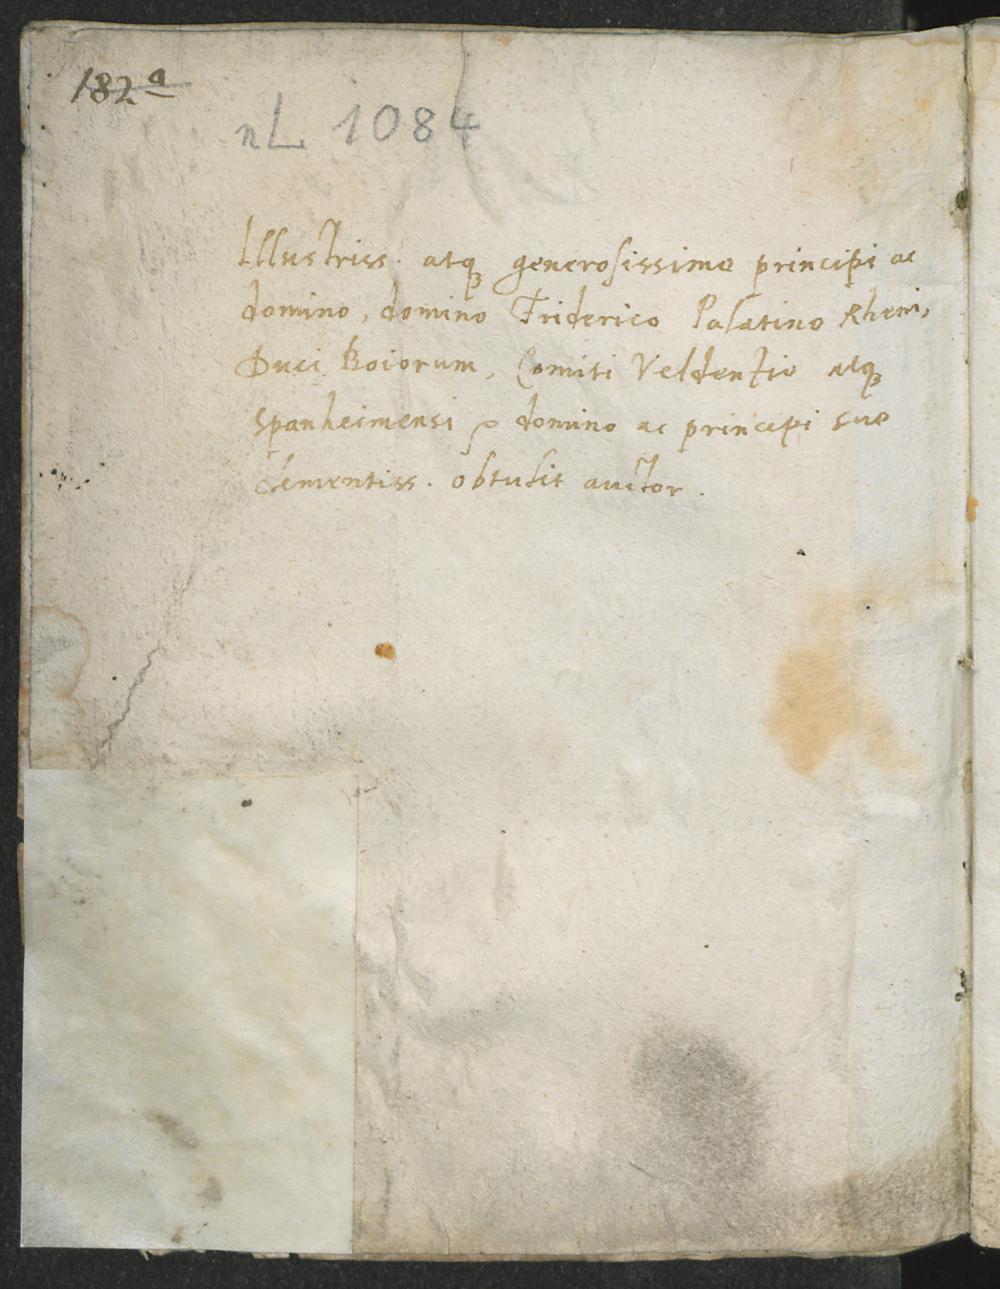 182a
nL 1084
Illustriss. atq3 generosissimo principi ac
domino, domino Friderico Palatino Rheni,
Duci Boiorum, Comiti Veldentio atq3
Spanheimensi domino ac principi suo
clementiss. obtulit auctor.